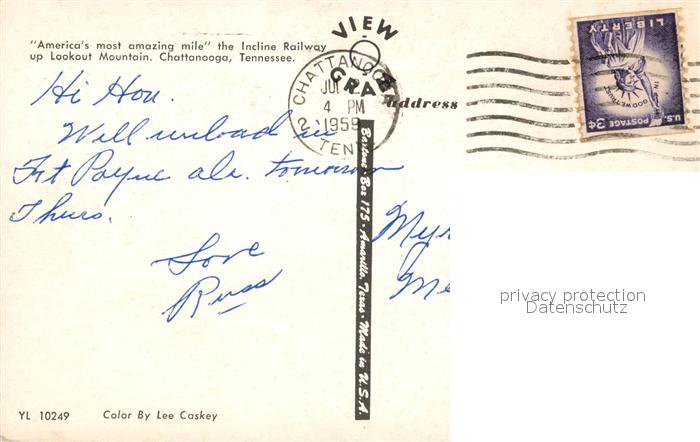 "America's most amazing mile" the Incline Railway
up Lookout Mountain. Chattanooga, Tennessee.
VIEW
GRAF
CHATTANOOGA
JUL
4 PM
1959
TENN
Address
U.S. POSTAGE 3¢
IN GOD WE TRUST
LIBERTY
Hi Hon.
Will unload in
Frt Payne ala. tomorrow
Thurs.
Love
Russ
Baxtone · Box 175 · Amarillo, Texas · Made in U.S.A.
privacy protection
Datenschutz
YL 10249 Color By Lee Caskey